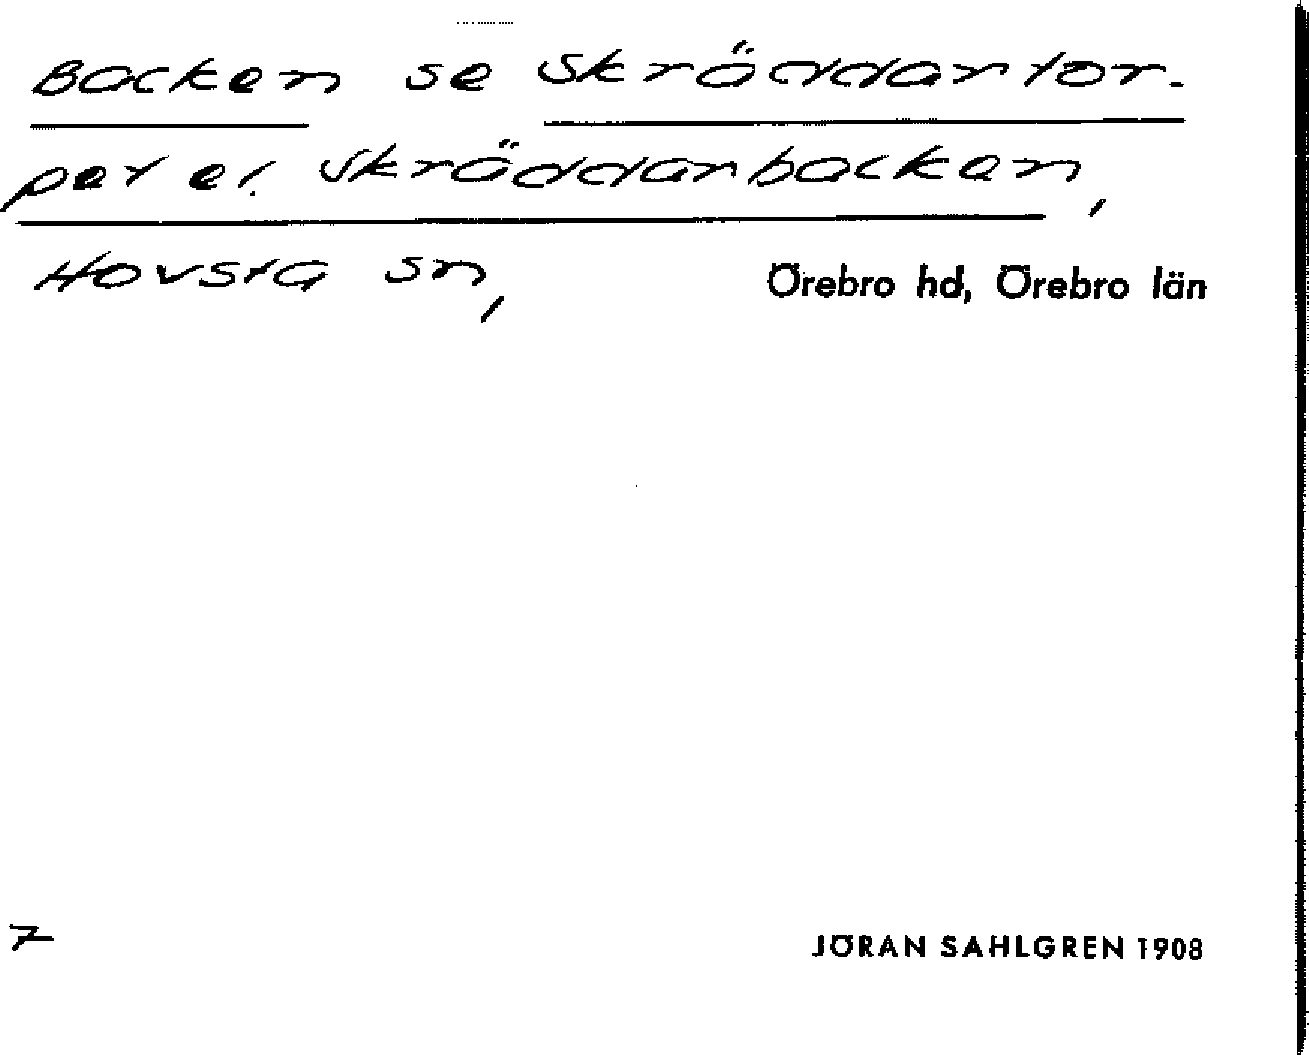 Backen se Skräddartor-
pet el. Skräddarbacken,
Hovsta sn, Örebro hd, Örebro län
7
JÖRAN SAHLGREN 1908